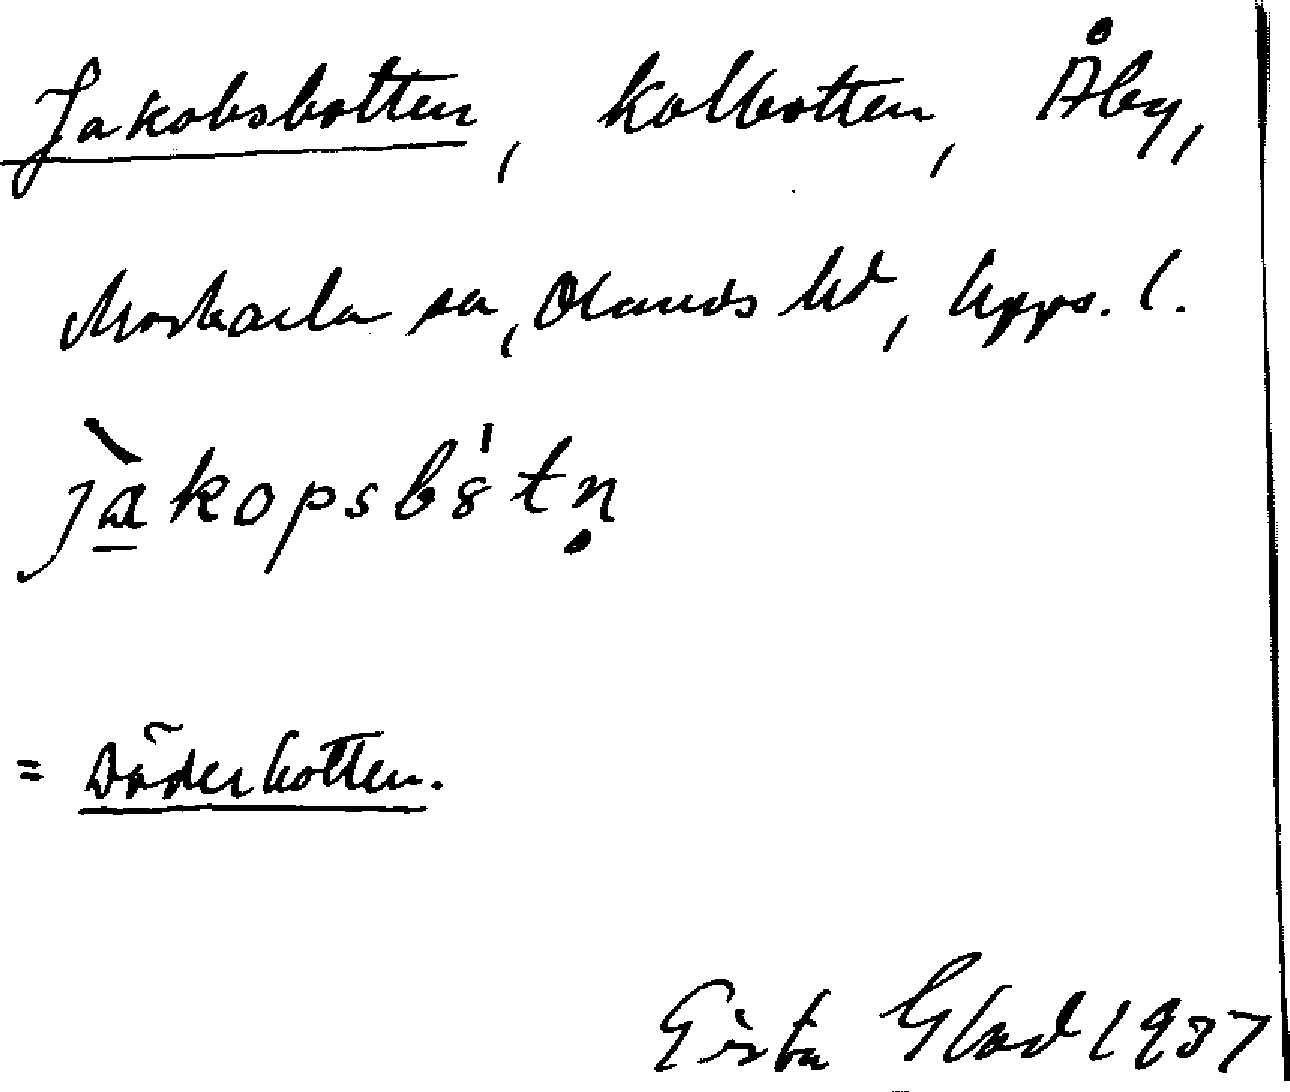 Jakobsbotten, kolbotten, Åby,
Morkarla sn, Olands hd, Upps. l.
jàkopsb8́tṇ
= Söderbotten.
Gösta Glad 1937